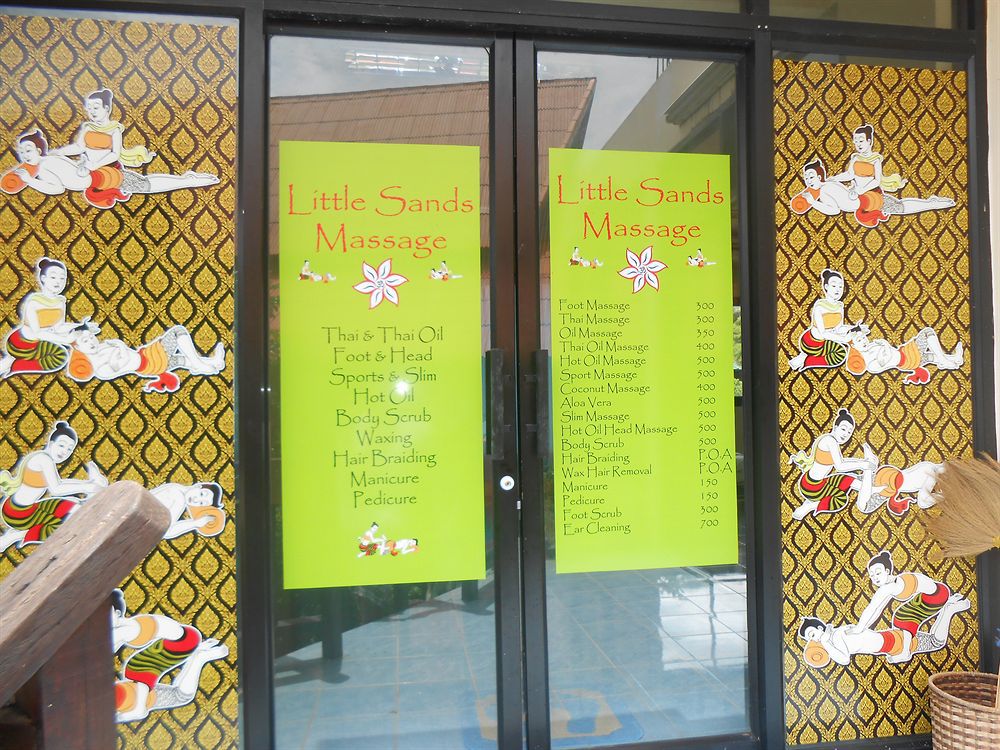 Little Sands
Massage
Thai & Thai Oil
Foot & Head
Sports & Slim
Hot Oil
Body Scrub
Waxing
Hair Braiding
Manicure
Pedicure
Little Sands
Massage
Foot Massage 300
Thai Massage 300
Oil Massage 350
Thai Oil Massage 400
Hot Oil Massage 500
Sport Massage 500
Coconut Massage 400
Aloa Vera 500
Slim Massage 500
Hot Oil Head Massage 500
Body Scrub 500
Hair Braiding P.O.A
Wax Hair Removal P.O.A
Manicure 150
Pedicure 150
Foot Scrub 300
Ear Cleaning 700